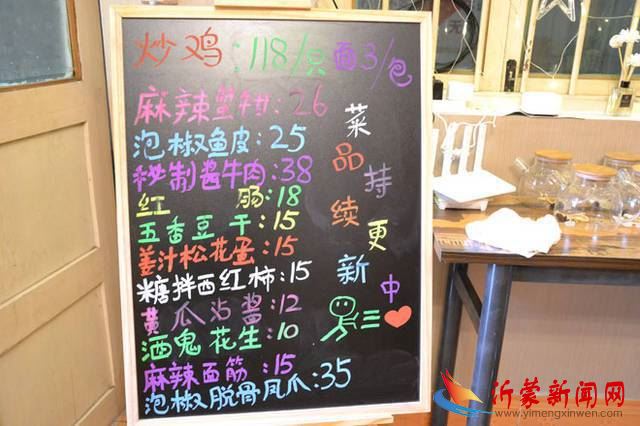 炒鸡:118/只 面3/包
麻辣蛰头:26
泡椒鱼皮:25
秘制酱牛肉:38
红 肠:18
五香豆干:15
姜汁松花蛋:15
糖拌西红柿:15
黄瓜沾酱:12
酒鬼花生:10
麻辣面筋:15
泡椒脱骨凤爪:35
菜品持续更新中
沂蒙新闻网
www.yimengxinwen.com